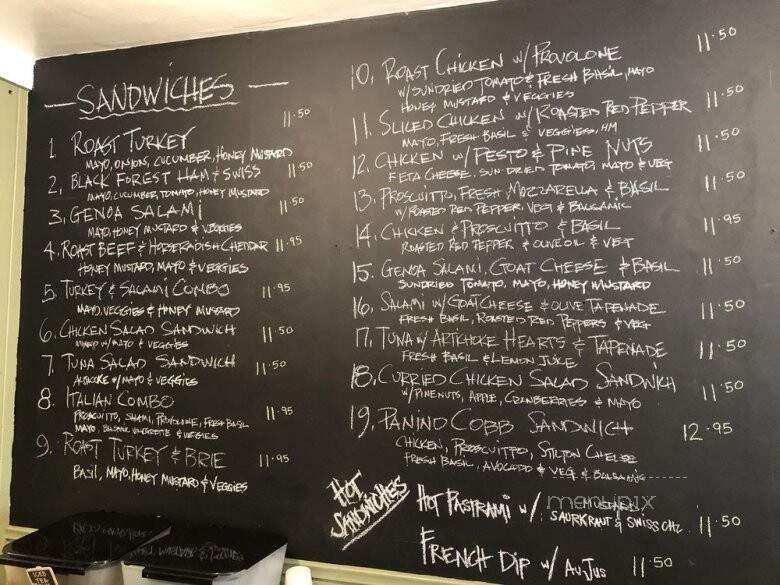 SANDWICHES
1 ROAST TURKEY 11.50
MAYO, ONION, CUCUMBER, HONEY MUSTARD
2, BLACK FOREST HAM & SWISS 11.50
MAYO, CUCUMBER, TOMATO, HONEY MUSTARD
3, GENOA SALAMI 11.50
MAYO, HONEY MUSTARD & VEGGIES
4. ROAST BEEF & HORSERADISH CHEDDAR 11.95
HONEY MUSTARD, MAYO & VEGGIES
5. TURKEY & SALAMI COMBO 11.95
MAYO, VEGGIES & HONEY MUSTARD
6. CHICKEN SALAD SANDWICH 11.50
MADE W/ MAYO & VEGGIES
7. TUNA SALAD SANDWICH 11.50
ALBACORE W/ MAYO & VEGGIES
8. ITALIAN COMBO 11.95
PROSCUITTO, SALAMI, PROVOLONE, FRESH BASIL
MAYO, BALSAMIC VINEGRETTE & VEGGIES
9. ROAST TURKEY & BRIE 11.95
BASIL, MAYO, HONEY MUSTARD & VEGGIES
10, ROAST CHICKEN W/ PROVOLONE 11.50
W/ SUNDRIED TOMATO & FRESH BASIL, MAYO
HONEY MUSTARD & VEGGIES
11. SLICED CHICKEN W/ ROASTED RED PEPPER 11.50
MAYO, FRESH BASIL & VEGGIES, HM
12. CHICKEN W/ PESTO & PINE NUTS 11.50
FETA CHEESE, SUN-DRIED TOMATO, MAYO & VEG
13. PROSCUITTO, FRESH MOZZARELLA & BASIL 11.50
W/ ROASTED RED PEPPER, VEG & BALSAMIC
14. CHICKEN & PROSCUITTO & BASIL 11.95
ROASTED RED PEPPER & OLIVE OIL & VEG
15. GENOA SALAMI, GOAT CHEESE & BASIL 11.50
SUNDRIED TOMATO, MAYO, HONEY MUSTARD
16. SALAMI W/ GOAT CHEESE & OLIVE TAPENADE 11.50
FRESH BASIL, ROASTED RED PEPPERS & VEG
17. TUNA W/ ARTICHOKE HEARTS & TAPENADE 11.50
FRESH BASIL & LEMON JUICE
18. CURRIED CHICKEN SALAD SANDWICH 11.50
W/ PINENUTS, APPLE, CRANBERRIES & MAYO
19. PANINO COBB SANDWICH 12.95
CHICKEN, PROSCUITTO, STILTON CHEESE
FRESH BASIL, AVOCADO & VEG & BALSAMIC
HOT SANDWICHES
HOT PASTRAMI W/ MUSTARD,
SAURKRAUT & SWISS CHZ. 11.50
FRENCH DIP W/ AU JUS 11.50
menupix
ICED
TEA